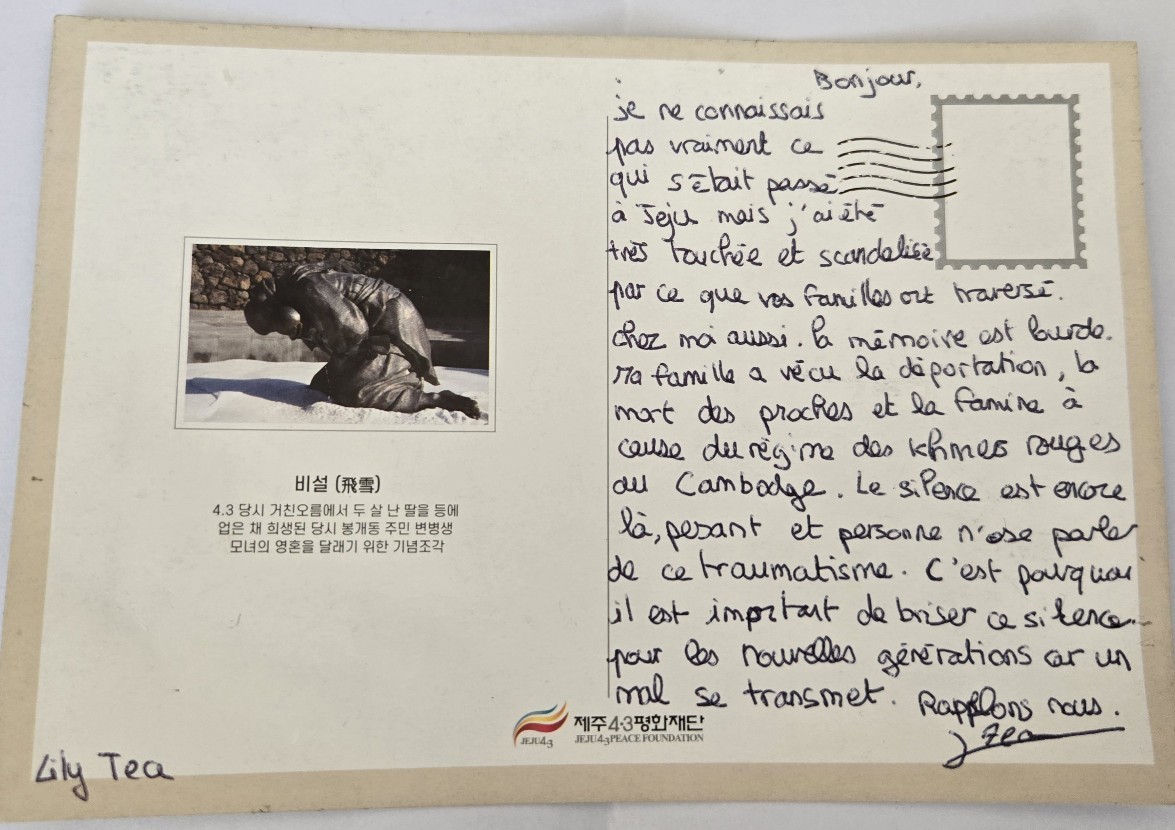 Bonjour,
je ne connaissais
pas vraiment ce
qui s'était passé
à Jeju mais j'ai été
très touchée et scandalisée
par ce que vos familles ont traversé.
chez moi aussi. la mémoire est lourde.
Ma famille a vécu la déportation, la
mort des proches et la famine à
cause du régime des khmers rouges
au Cambodge. Le silence est encore
là, pesant et personne n'ose parler
de ce traumatisme. C'est pourquoi
il est important de briser ce silence
pour les nouvelles générations car un
mal se transmet. Rappelons nous.
Tea
비설 (飛雪)
4.3 당시 거친오름에서 두 살 난 딸을 등에
업은 채 희생된 당시 봉개동 주민 변병생
모녀의 영혼을 달래기 위한 기념조각
제주4·3평화재단
JEJU43 JEJU43PEACE FOUNDATION
Lily Tea